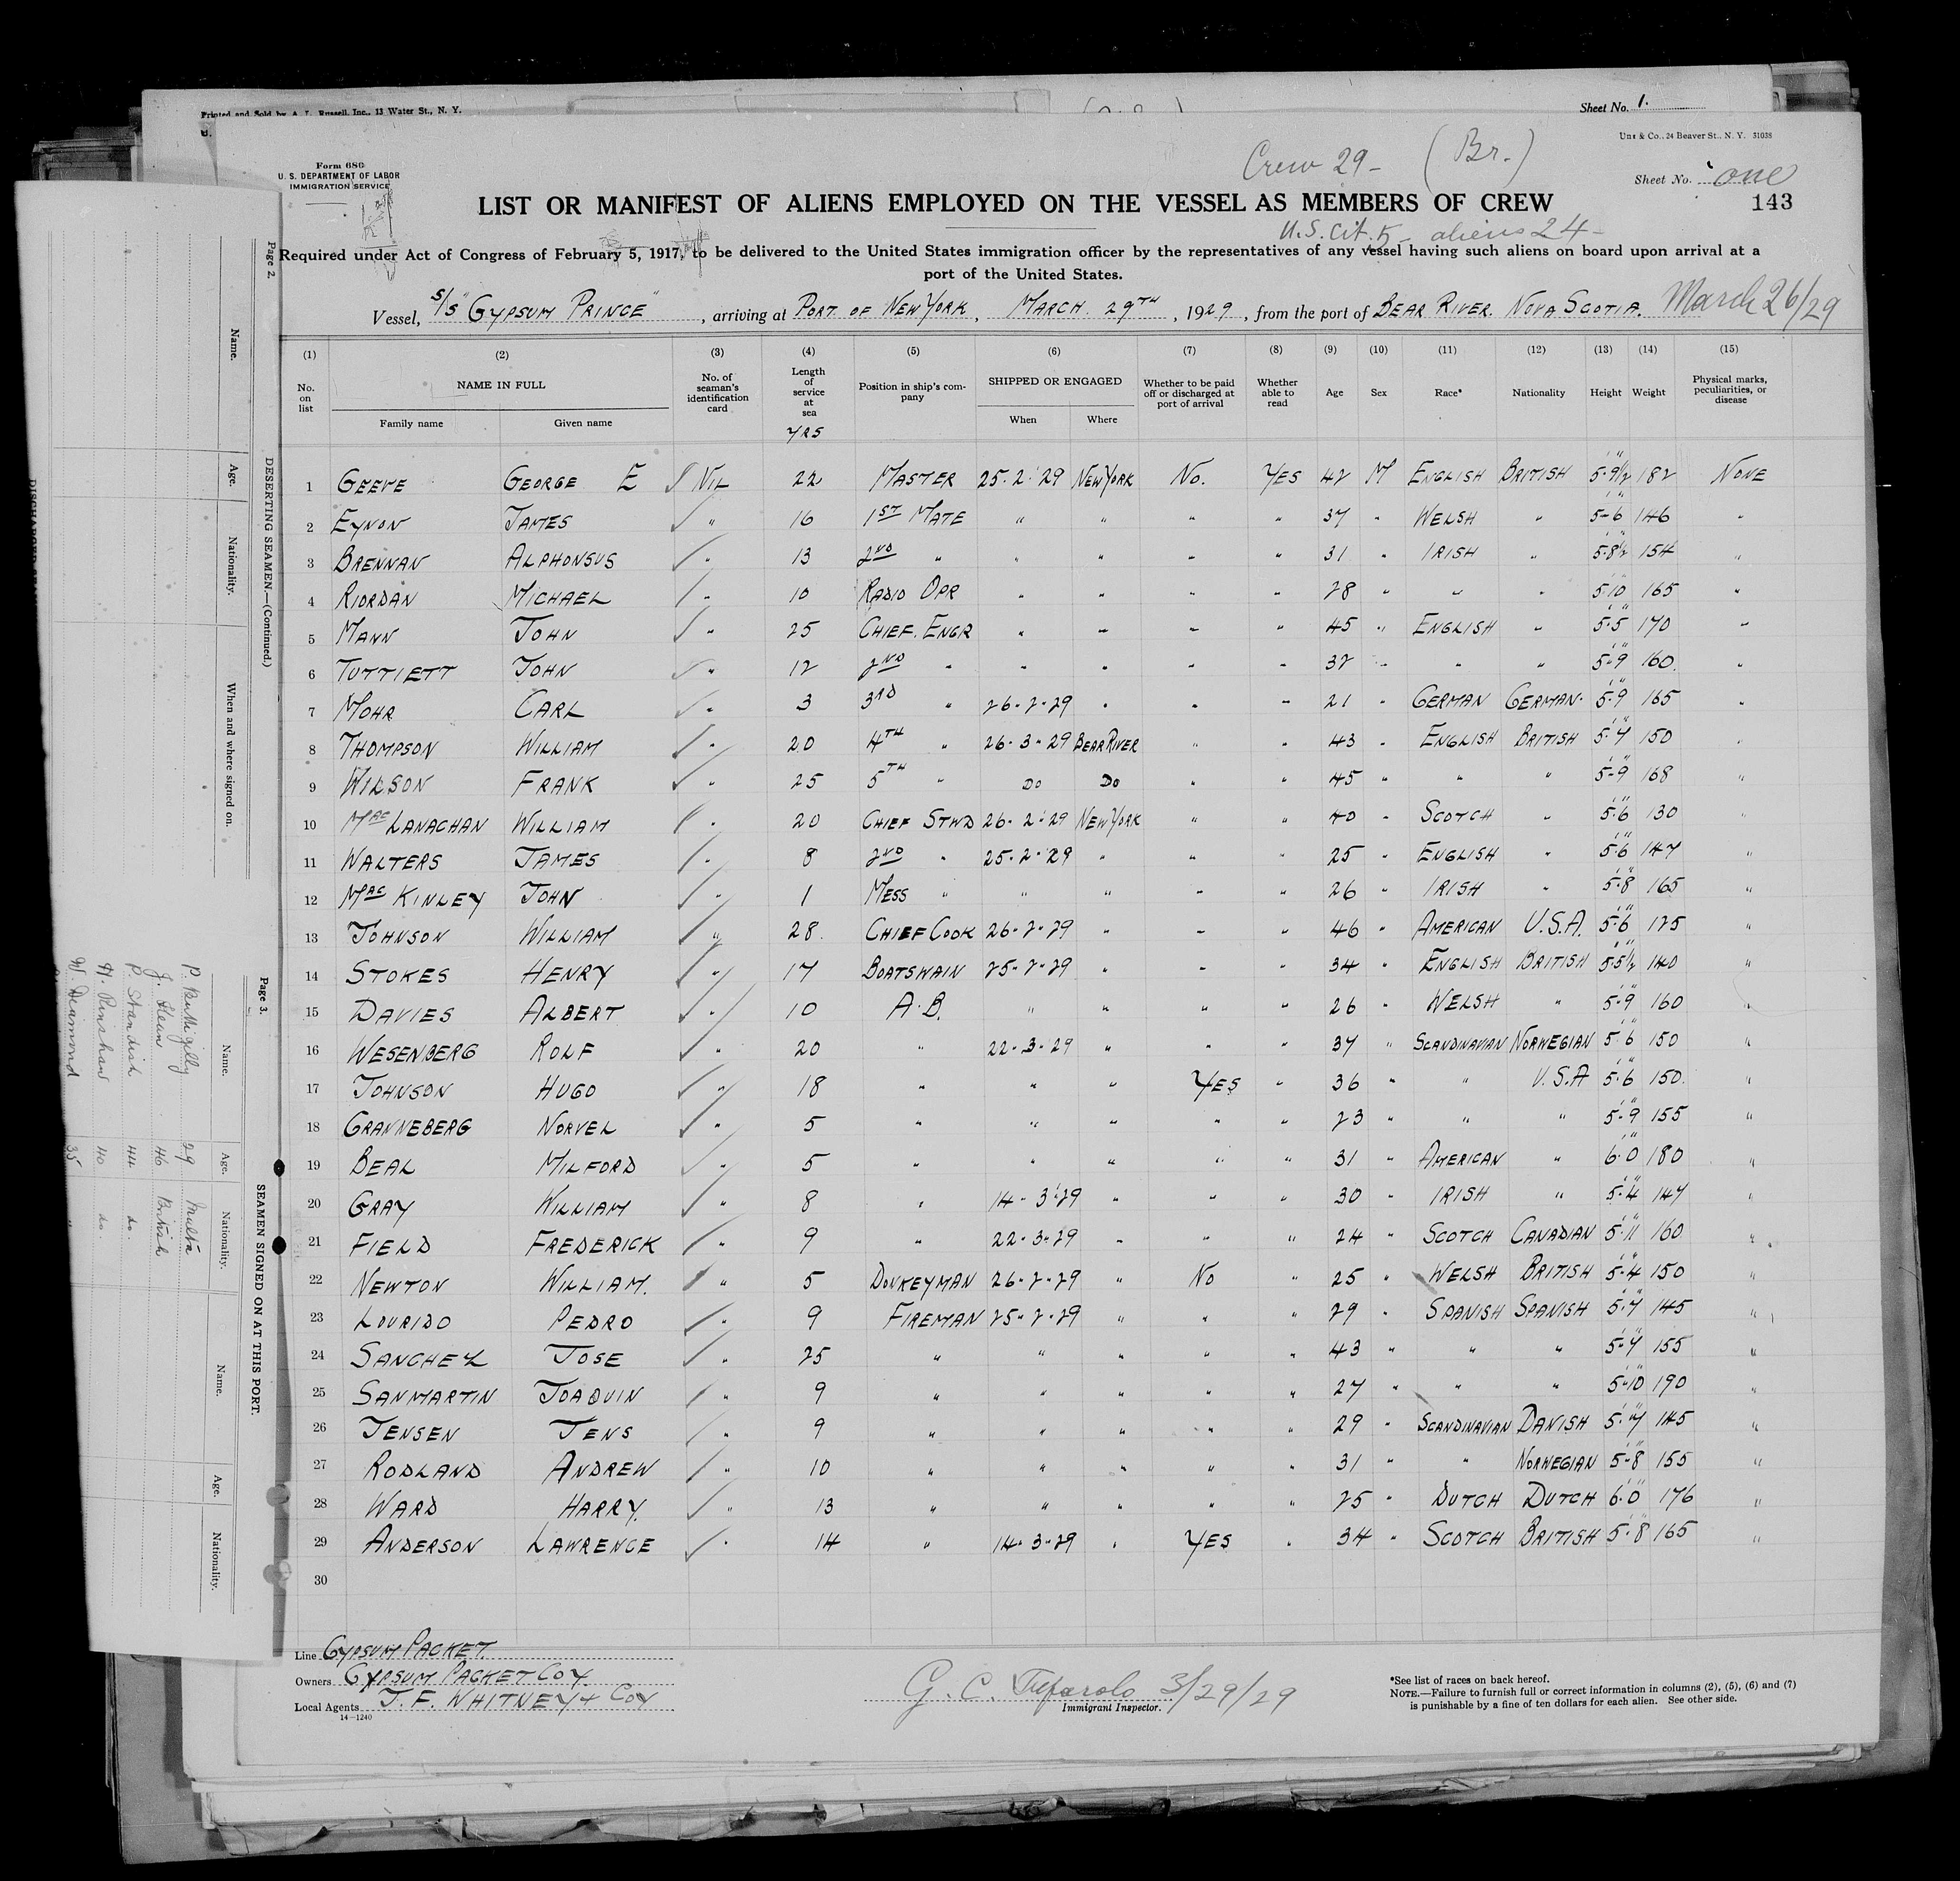 Printed and Sold by A. L. Russell, Inc., 13 Water St., N. Y.
Sheet No. 1.
Unz & Co., 24 Beaver St., N. Y. 31038
Form 680
U. S. DEPARTMENT OF LABOR
IMMIGRATION SERVICE
Crew 29 - (Br.)
Sheet No. one
LIST OR MANIFEST OF ALIENS EMPLOYED ON THE VESSEL AS MEMBERS OF CREW
143
U.S. Cit. 5 - aliens 24 -
Required under Act of Congress of February 5, 1917, to be delivered to the United States immigration officer by the representatives of any vessel having such aliens on board upon arrival at a
port of the United States.
Vessel, S/S "GYPSUM PRINCE", arriving at PORT OF NEW YORK, MARCH. 29TH, 1929, from the port of BEAR RIVER. NOVA SCOTIA. March 26/29
(1) (2) (3) (4) (5) (6) (7) (8) (9) (10) (11) (12) (13) (14) (15)
No. on list NAME IN FULL Family name Given name No. of seaman's identification card Length of service at sea YRS Position in ship's company SHIPPED OR ENGAGED When Where Whether to be paid off or discharged at port of arrival Whether able to read Age Sex Race* Nationality Height Weight Physical marks, peculiarities, or disease
1 GEEVE GEORGE E NIL 22 MASTER 25.2.29 NEW YORK NO. YES 42 M ENGLISH BRITISH 5'-9½" 182 NONE
2 EYNON JAMES " 16 1ST MATE " " " " 37 " WELSH " 5'-6" 146 "
3 BRENNAN ALPHONSUS " 13 2ND " " " " " 31 " IRISH " 5'-8½" 154 "
4 RIORDAN MICHAEL " 10 RADIO OPR " " " " 28 " " " 5'10" 165 "
5 MANN JOHN " 25 CHIEF. ENGR " " " " 45 " ENGLISH " 5'-5" 170 "
6 TUTTIETT JOHN " 12 2ND " " " " " 32 " " " 5'-9" 160 "
7 MOHR CARL " 3 3RD " 26-2-29 " " " 21 " GERMAN GERMAN. 5'-9" 165 "
8 THOMPSON WILLIAM " 20 4TH " 26-3-29 BEAR RIVER " " 43 " ENGLISH BRITISH 5'-7" 150 "
9 WILSON FRANK " 25 5TH " DO DO " " 45 " " " 5'-9" 168 "
10 MAC LANACHAN WILLIAM " 20 CHIEF STWD 26-2-29 NEW YORK " " 40 " SCOTCH " 5'-6" 130 "
11 WALTERS JAMES " 8 2ND " 25-2-29 " " " 25 " ENGLISH " 5'6" 147 "
12 MAC KINLEY JOHN " 1 MESS " " " " " 26 " IRISH " 5'-8" 165 "
13 JOHNSON WILLIAM " 28 CHIEF COOK 26-2-29 " " " 46 " AMERICAN U.S.A. 5'-6" 175 "
14 STOKES HENRY " 17 BOATSWAIN 25-2-29 " " " 34 " ENGLISH BRITISH 5'5½" 140 "
15 DAVIES ALBERT " 10 A.B. " " " " 26 " WELSH " 5'-9" 160 "
16 WESENBERG ROLF " 20 " 22-3-29 " " " 37 " SCANDINAVIAN NORWEGIAN 5'6" 150 "
17 JOHNSON HUGO " 18 " " " YES " 36 " " U.S.A 5'6" 150 "
18 GRANNEBERG NORVEL " 5 " " " " " 23 " " " 5'-9" 155 "
19 BEAL MILFORD " 5 " " " " " 31 " AMERICAN " 6'-0" 180 "
20 GRAY WILLIAM " 8 " 14-3-29 " " " 30 " IRISH " 5'-4" 147 "
21 FIELD FREDERICK " 9 " 22-3-29 " " " 24 " SCOTCH CANADIAN 5'-11" 160 "
22 NEWTON WILLIAM. " 5 DONKEYMAN 26-2-29 " NO " 25 " WELSH BRITISH 5'-4" 150 "
23 LOURIDO PEDRO " 9 FIREMAN 25-2-29 " " " 29 " SPANISH SPANISH 5'-7" 145 "
24 SANCHEZ JOSE " 25 " " " " " 43 " " " 5'-7" 155 "
25 SANMARTIN JOAQUIN " 9 " " " " " 27 " " " 5'-10" 190 "
26 JENSEN JENS " 9 " " " " " 29 " SCANDINAVIAN DANISH 5'-7" 145 "
27 RODLAND ANDREW " 10 " " " " " 31 " " NORWEGIAN 5'-8" 155 "
28 WARD HARRY. " 13 " " " " " 25 " DUTCH DUTCH 6'-0" 176 "
29 ANDERSON LAWRENCE " 14 " 14-3-29 " YES " 34 " SCOTCH BRITISH 5'-8" 165 "
30
Line GYPSUM PACKET.
Owners GYPSUM PACKET COY.
Local Agents J. F. WHITNEY & COY
14-1240
3/29/29
Immigrant Inspector.
*See list of races on back hereof.
NOTE.—Failure to furnish full or correct information in columns (2), (5), (6) and (7)
is punishable by a fine of ten dollars for each alien. See other side.
Page 2.
DESERTING SEAMEN.—(Continued.)
Name. Age. Nationality. When and where signed on.
Page 3.
SEAMEN SIGNED ON AT THIS PORT.
Name. Age. Nationality. Name. Age. Nationality.
29 Malta
J. Stein 46 British
P. Standish 44 do.
40 do.
W. Deammond 35 "